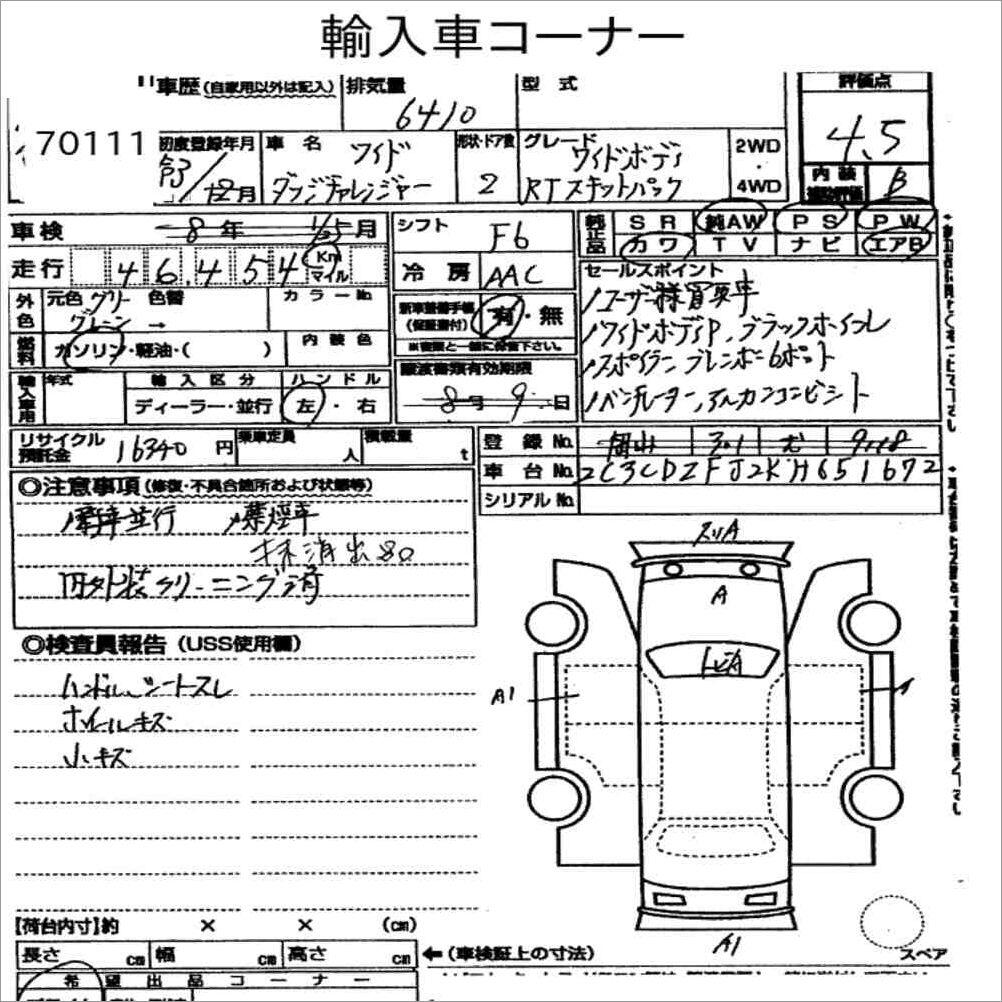 輸入車コーナー
車歴(自家用以外は記入) 排気量 6410 型式 評価点 4.5
70111 初度登録年月 R3/12月 車名 ワイド ダッジチャレンジャー 形状・ドア数 2 グレード ワイドボディ RTスキャットパック 2WD・4WD 内装 補助評価 B
車検 8年 月 シフト F6 純正品 SR 純AW PS PW
カワ TV ナビ エアB
走行 46,454 Km マイル 冷房 AAC セールスポイント
外色 元色 グリーン 色替 カラーNo. 新車整備手帳(保証書付) 有・無 ユーザー様買取車
グレーン → ※後書と一緒に保管下さい。 ワイドボディP、ブラックホイール
燃料 ガソリン・軽油・( ) 内装色 スポイラー、ブレンボ6ポット
輸入車用 年式 輸入区分 ハンドル 譲渡書類有効期限 ベンチレーター、アルカンコンビシート
ディーラー・並行 左・右 8月9日
リサイクル預託金 16340円 乗車定員 人 積載量 t 登録No. 岡山
車台No. 2C3CDZFJ2KH651672
シリアルNo.
◎注意事項(修復・不具合箇所および状態等)
新車並行 禁煙車
抹消出80
内外装クリーニング済
スリA
A
トビA
◎検査員報告(USS使用欄)
ハンドル、シートスレ
ホイールキズ
小キズ
A1
A1
【荷台内寸】約 × × (cm)
長さ cm 幅 cm 高さ cm ←(車検証上の寸法) スペア
希望出品コーナー